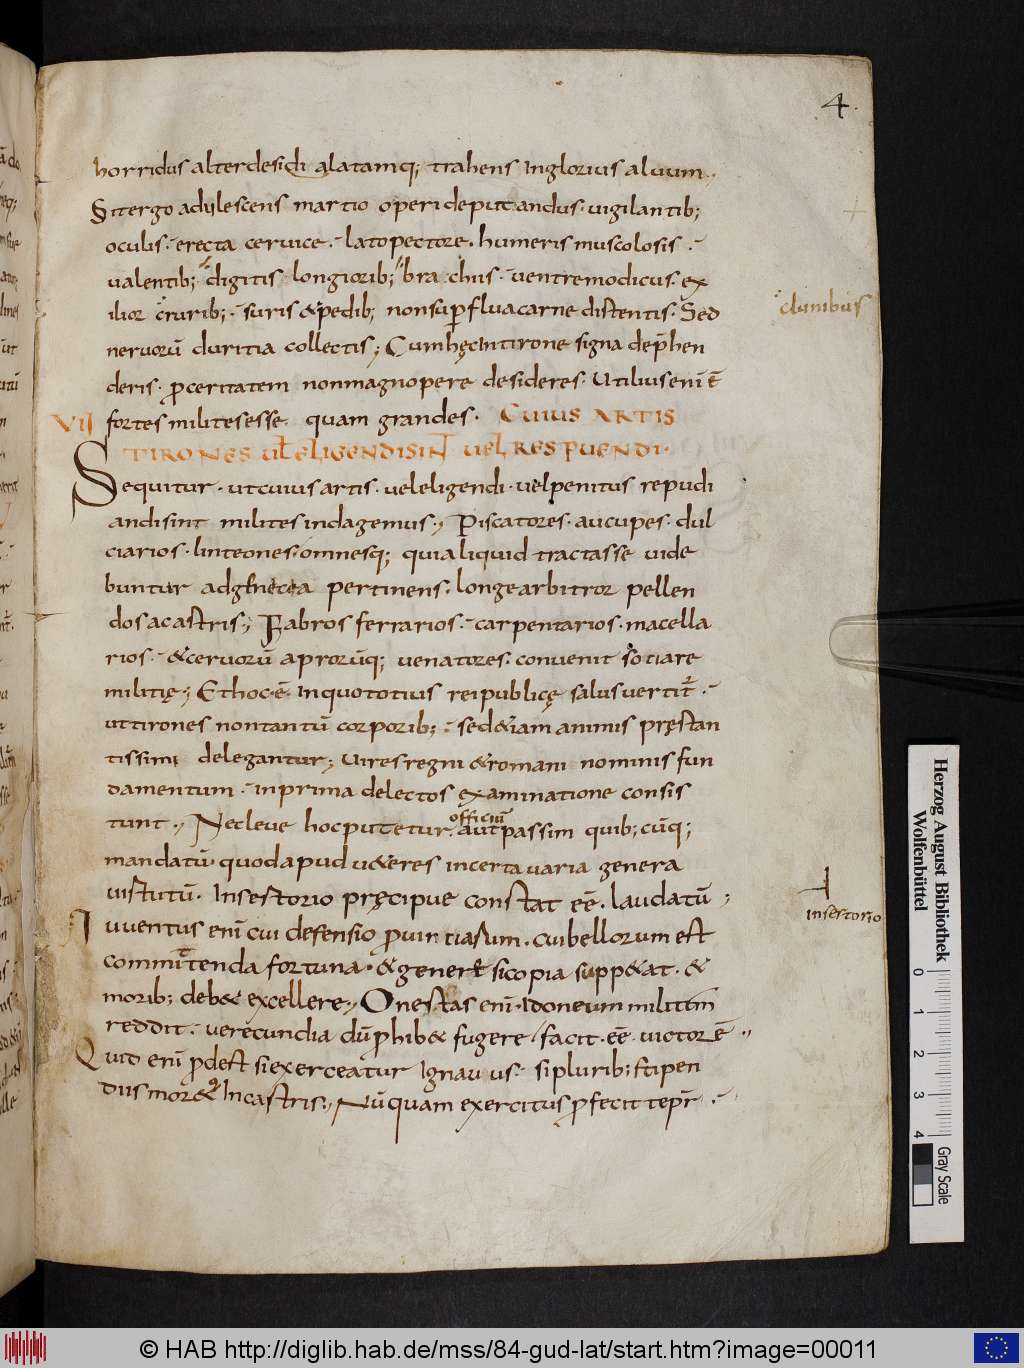 4.
horridus alter desidi alatamq; trahens Inglorius aluum.,
Sit ergo adulescens martio operi deputandus. uigilantib;
oculis. erecta ceruice. lato pectore. humeris muscolosis.
ualentib; digitis longiorib; brachiis. uentre modicus. ex
clunibus
ilior crurib;. suris & pedib; non supflua carne distentis. Sed
neruorū duritia collectis; Cum hęc In tirone signa dep̄hen
deris. proceritatem non magnopere desideres. Utilius enī ē
VII fortes milites esse quam grandes. CUIUS ARTIS
TIRONES UĿ ELIGENDI SINT UEL RESPUENDI.
Sequitur. ut cuius artis. uel eligendi. uel penitus repudi
andi sint milites indagemus., Piscatores. aucupes. dul
ciarios. linteones. omnesq; qui aliquid tractasse uide
buntur ad gẏnecea pertinens. longe arbitror pellen
dos a castris., Fabros ferrarios. carpentarios. macella
rios. & ceruorū aprorūq; uenatores. conuenit sociare
militię., Et hoc ē In quo totius rei publicę salus uertit̄.
ut tirones non tantū corporib;. sed &iam animis pręstan
tissimi delegantur; Uires regni & romani nominis fun
damentum. in prima delectos examinatione consis
tunt., Nec leue hoc putetur officiū aut passim quib; cūq;
mandatū. quod apud u&eres in certa uaria genera
uirtutū. In sestorio pręcipue constat eē. laudatū;
insestorio
Iuuentus enī cui defensio puintiarum. cui bellorum est
committenda fortuna. & genere si copia supp&at. &
morib; deb& excellere., Onestas enī Idoneum militem
reddit. uerecundia dū phib& fugere facit. eē uictorē.,
Quid enī pdest si exerceatur Ignauus. si plurib; stipen
diis mor&ur In castris., Nūquam exercitus pfecit tepr̄.
Herzog August Bibliothek
Wolfenbüttel
0 1 2 3 4
Gray Scale
© HAB http://diglib.hab.de/mss/84-gud-lat/start.htm?image=00011